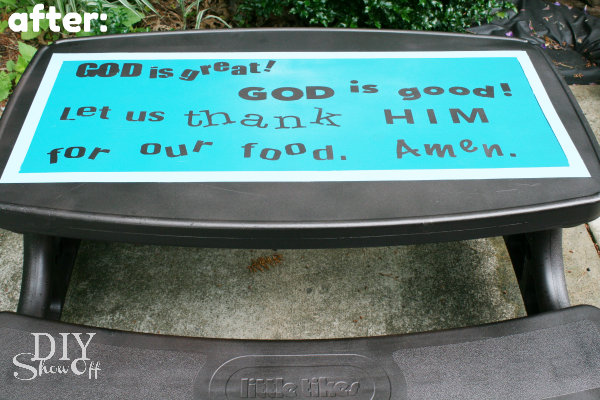 after:
GOD is great!
GOD is good!
Let us thank HIM
for our food. Amen.
DIY
Show Off
little tikes